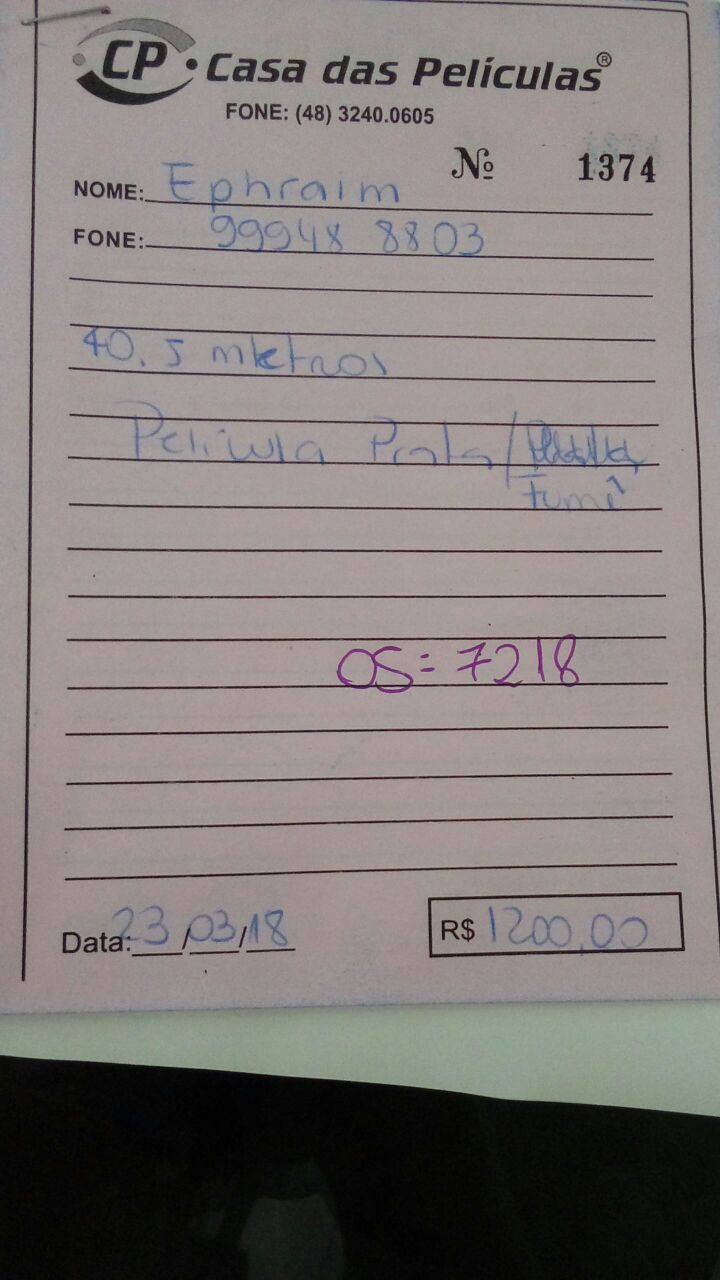 CP • Casa das Películas®
FONE: (48) 3240.0605
Nº 1374
NOME: Ephraim
FONE: 99948 8803
40.5 metros
Película Prata/
Fumê
OS= 7218
Data: 23/03/18 R$ 1200,00